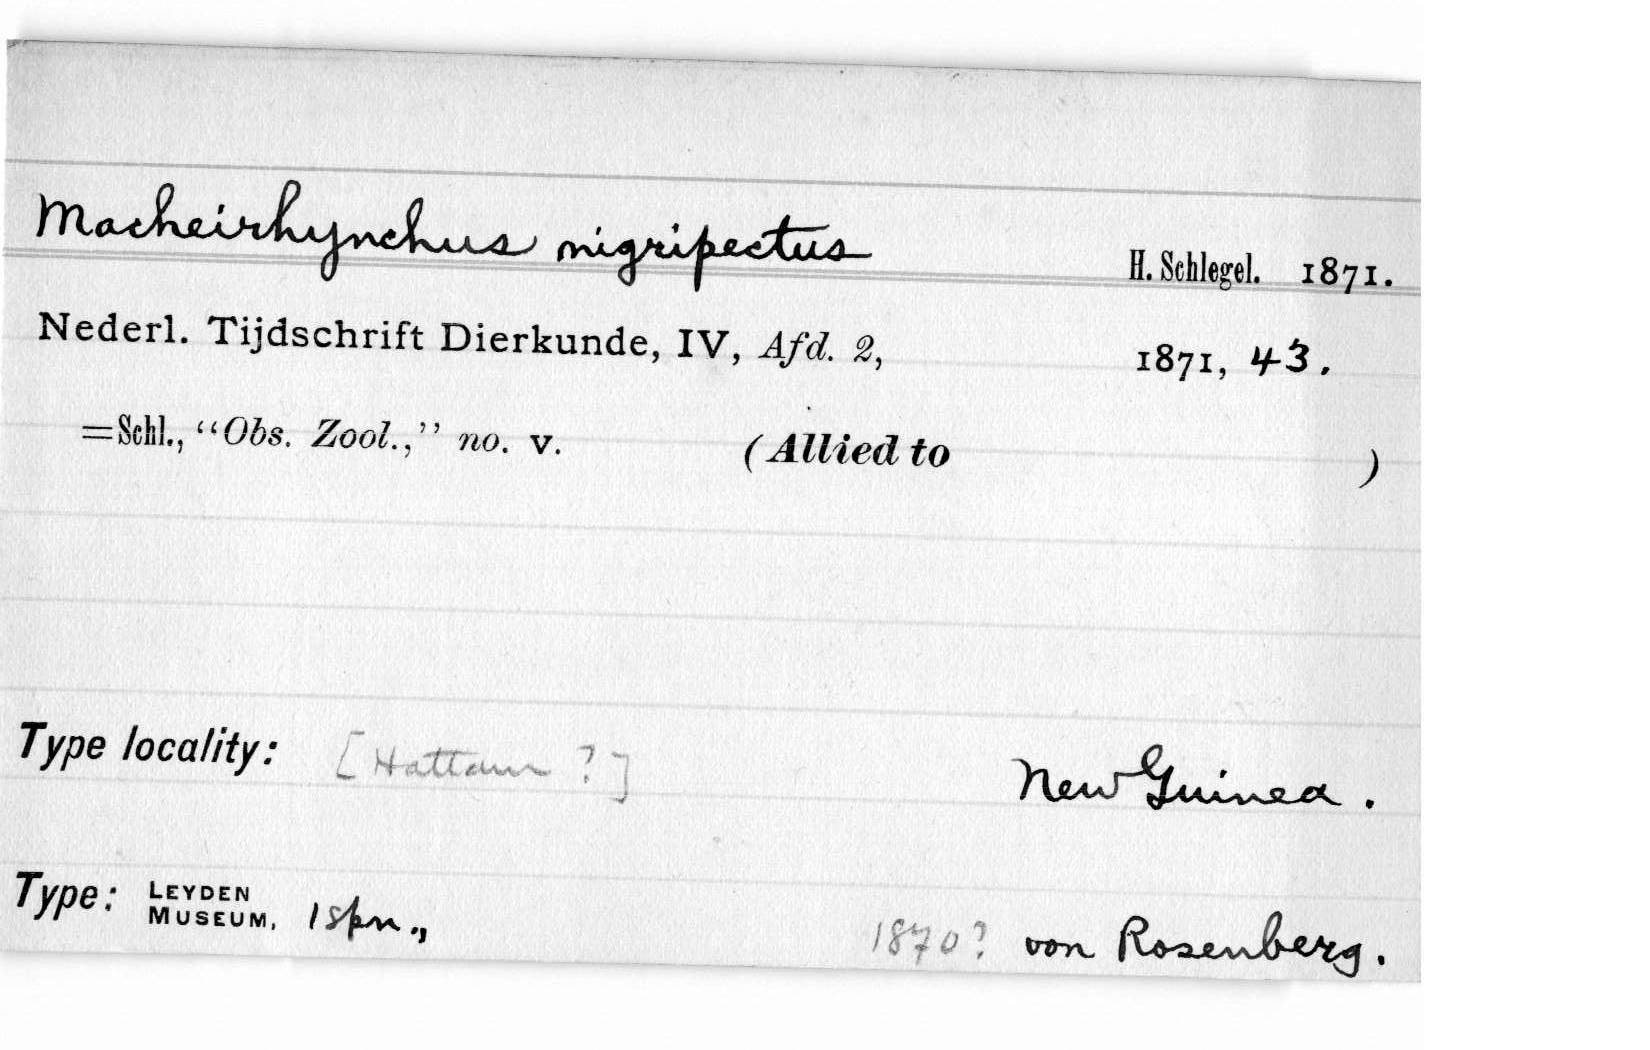 Macheirhynchus nigripectus H. Schlegel. 1871.
Nederl. Tijdschrift Dierkunde, IV, Afd. 2, 1871, 43.
=Schl., “Obs. Zool.,” no. v. (Allied to )
Type locality: [Hattam ?] New Guinea.
Type: LEYDEN MUSEUM, 1 spn., 1870? von Rosenberg.